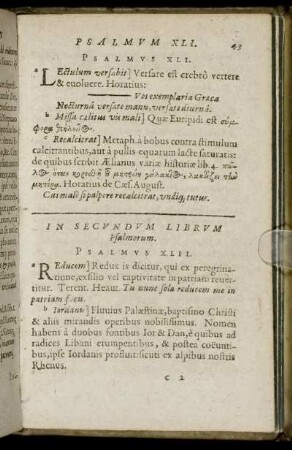 PSALMVM XLI. 43
PSALMVS XLI.
a LEctulum versabis] Versare est crebrò vertere
& euoluere. Horatius:
Vos exemplaria Græca
Nocturnâ versate manu, versate diurnâ.
b Missa cælitus vis mali] Quæ Euripidi est
c Recalcitrat] Metaph. à bobus contra stimulum
calcitrantibus, aut à pullis equarum lacte saturatis:
de quibus scribit Ælianus variæ historiæ lib. 4.
Horatius de Cæs. August.
Cui malè si palpere recalcitrat, undiq; tutus.
IN SECVNDVM LIBRVM
Psalmorum.
PSALMVS XLII.
a REducem] Redux is dicitur, qui ex peregrina-
tione, exilio vel captivitate in patriam reuer-
titur. Terent. Heaut. Tu nunc sola reducem me in
patriam facis.
b Iordanis] Fluuius Palæstinæ, baptismo Christi
& aliis mirandis operibus nobilissimus. Nomen
habens à duobus fontibus Ior & Dan, è quibus ad
radices Libani erumpentibus, & postea coëunti-
bus, ipse Iordanis profluit: sicuti ex alpibus nostris
Rhenus.
C 2